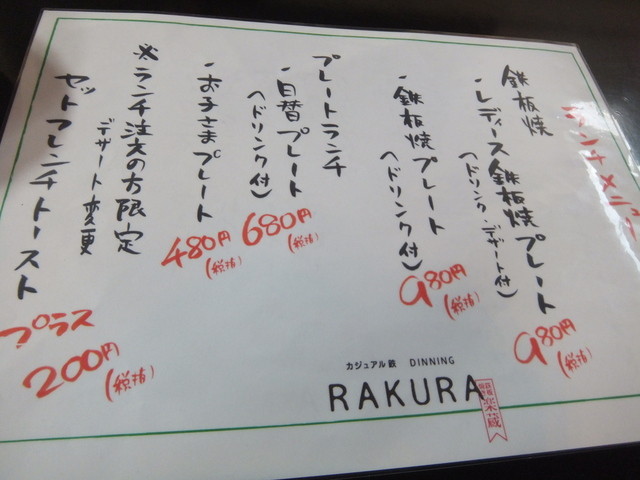 ランチメニュー
鉄板焼
・レディース鉄板焼プレート
(ドリンク、デザート付)
980円
(税抜)
・鉄板焼プレート
(ドリンク付)
980円
(税抜)
プレートランチ
・日替プレート
(ドリンク付)
680円
(税抜)
・お子さまプレート
480円
(税抜)
※ランチ注文の方限定
デザート変更
セットフレンチトースト
プラス
200円
(税抜)
カジュアル鉄 DINNING
RAKURA
楽蔵